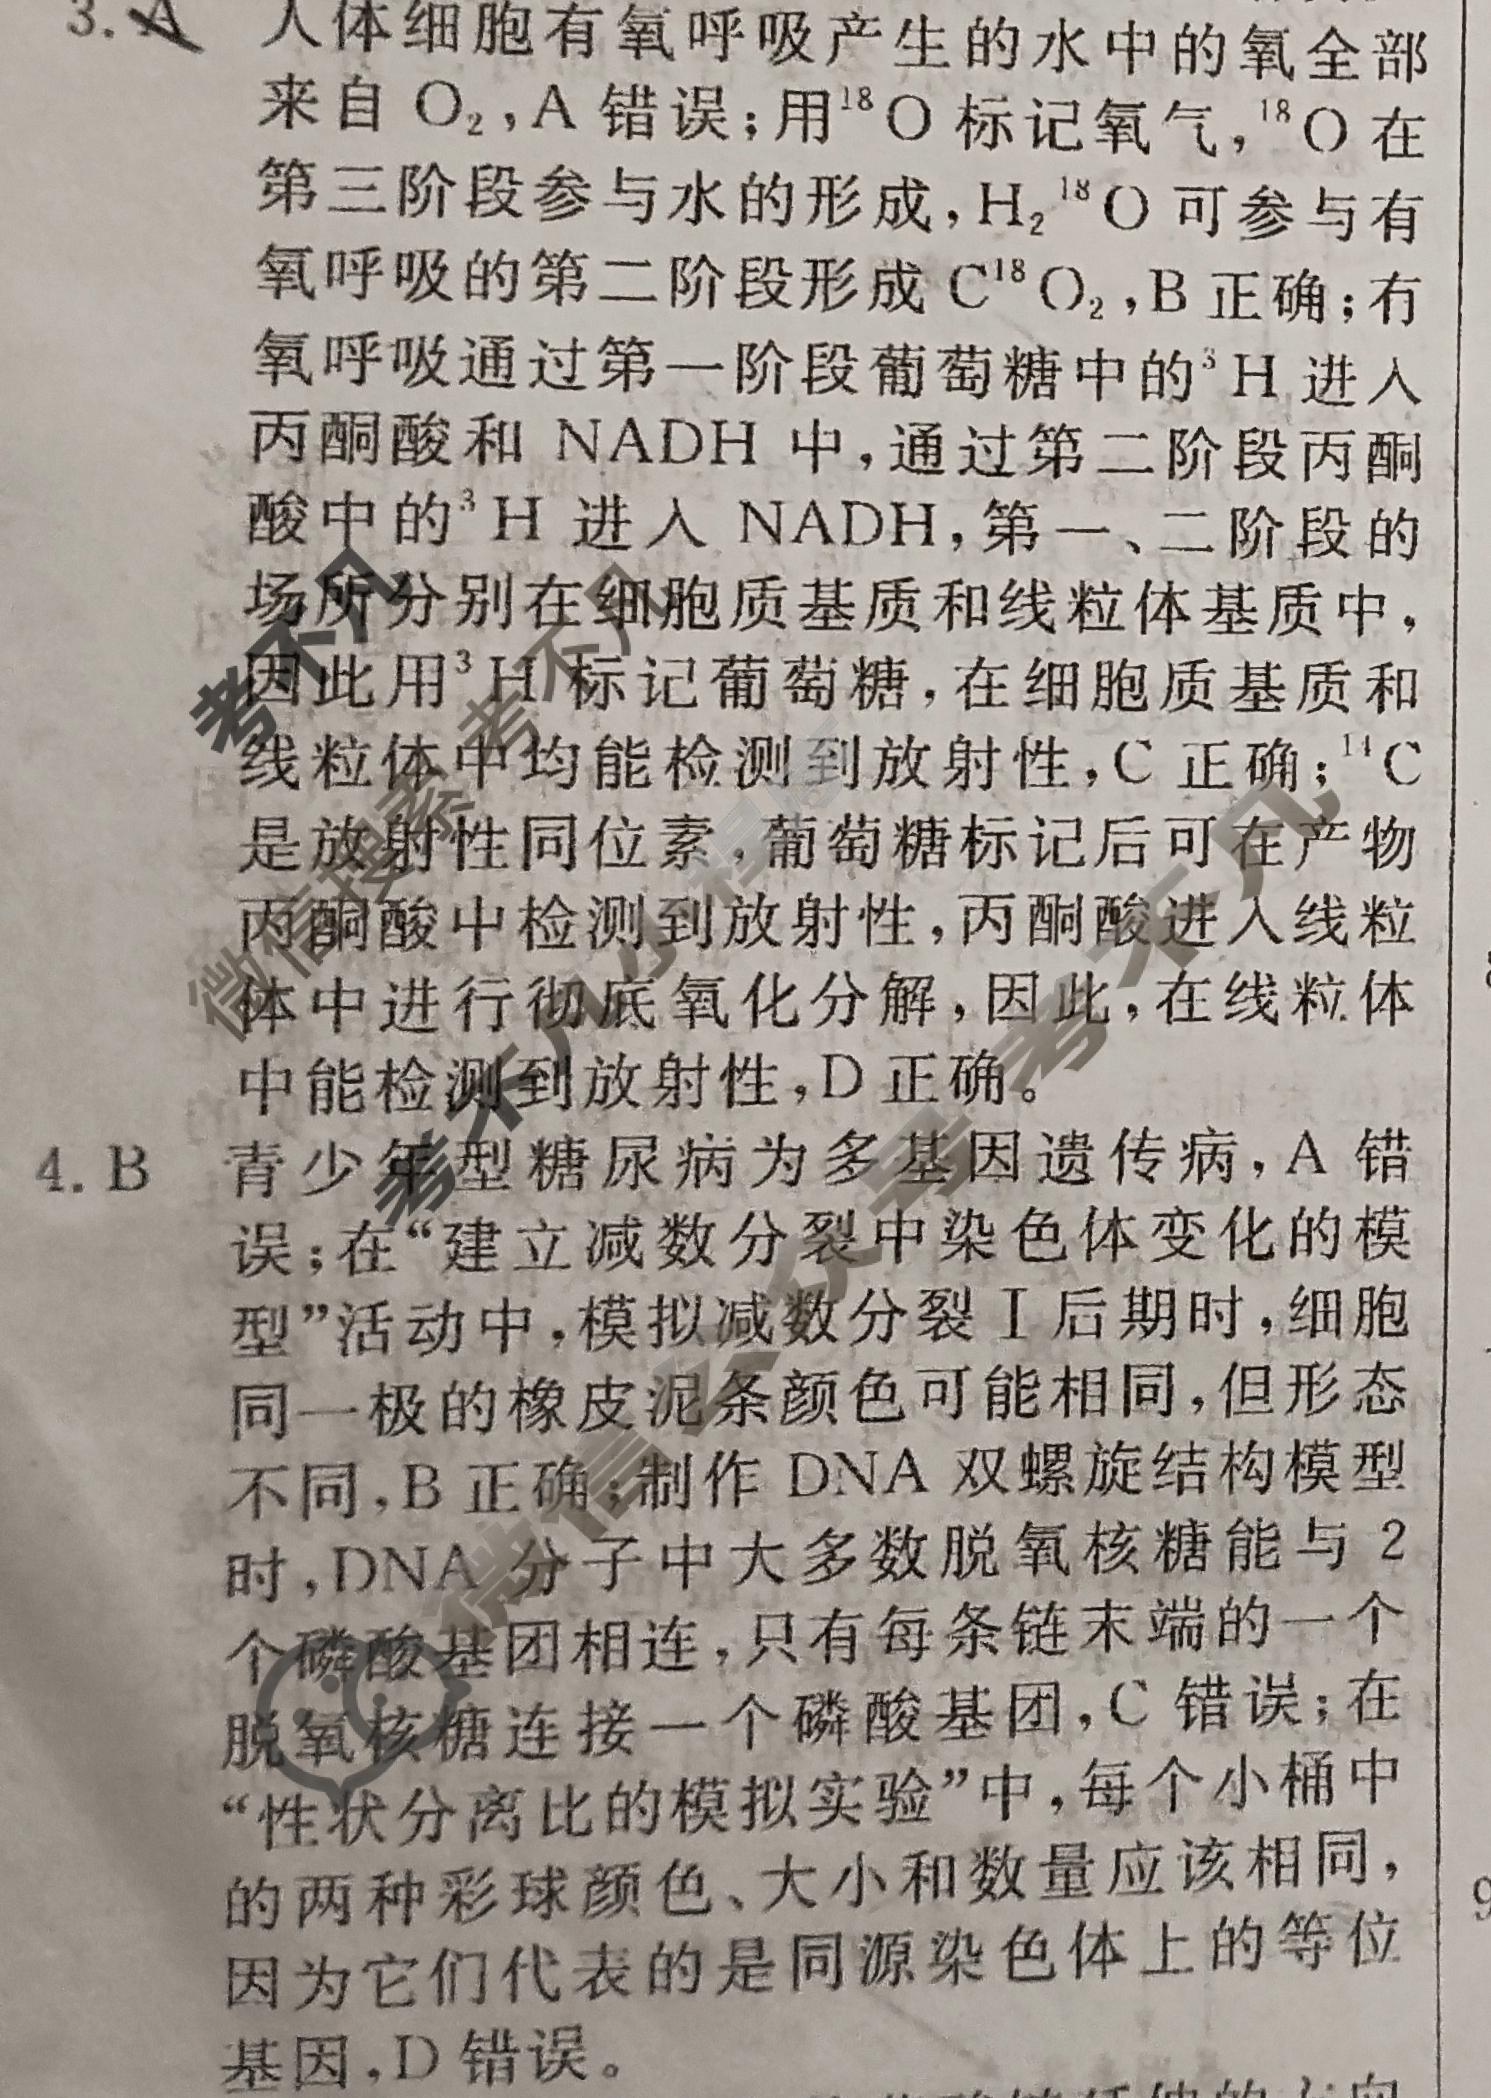 3. A 人体细胞有氧呼吸产生的水中的氧全部
来自 O₂,A 错误;用¹⁸O 标记氧气,¹⁸O 在
第三阶段参与水的形成,H₂¹⁸O 可参与有
氧呼吸的第二阶段形成 C¹⁸O₂,B 正确;有
氧呼吸通过第一阶段葡萄糖中的³H 进入
丙酮酸和 NADH 中,通过第二阶段丙酮
酸中的³H 进入 NADH,第一、二阶段的
场所分别在细胞质基质和线粒体基质中,
因此用³H 标记葡萄糖,在细胞质基质和
线粒体中均能检测到放射性,C 正确;¹⁴C
是放射性同位素,葡萄糖标记后可在产物
丙酮酸中检测到放射性,丙酮酸进入线粒
体中进行彻底氧化分解,因此,在线粒体
中能检测到放射性,D 正确。
4. B 青少年型糖尿病为多基因遗传病,A 错
误;在“建立减数分裂中染色体变化的模
型”活动中,模拟减数分裂 I 后期时,细胞
同一极的橡皮泥条颜色可能相同,但形态
不同,B 正确;制作 DNA 双螺旋结构模型
时,DNA 分子中大多数脱氧核糖能与 2
个磷酸基团相连,只有每条链末端的一个
脱氧核糖连接一个磷酸基团,C 错误;在
“性状分离比的模拟实验”中,每个小桶中
的两种彩球颜色、大小和数量应该相同,
因为它们代表的是同源染色体上的等位
基因,D 错误。
9
考不凡
微信搜索 考不凡
考不凡小程序
微信公众号 考不凡